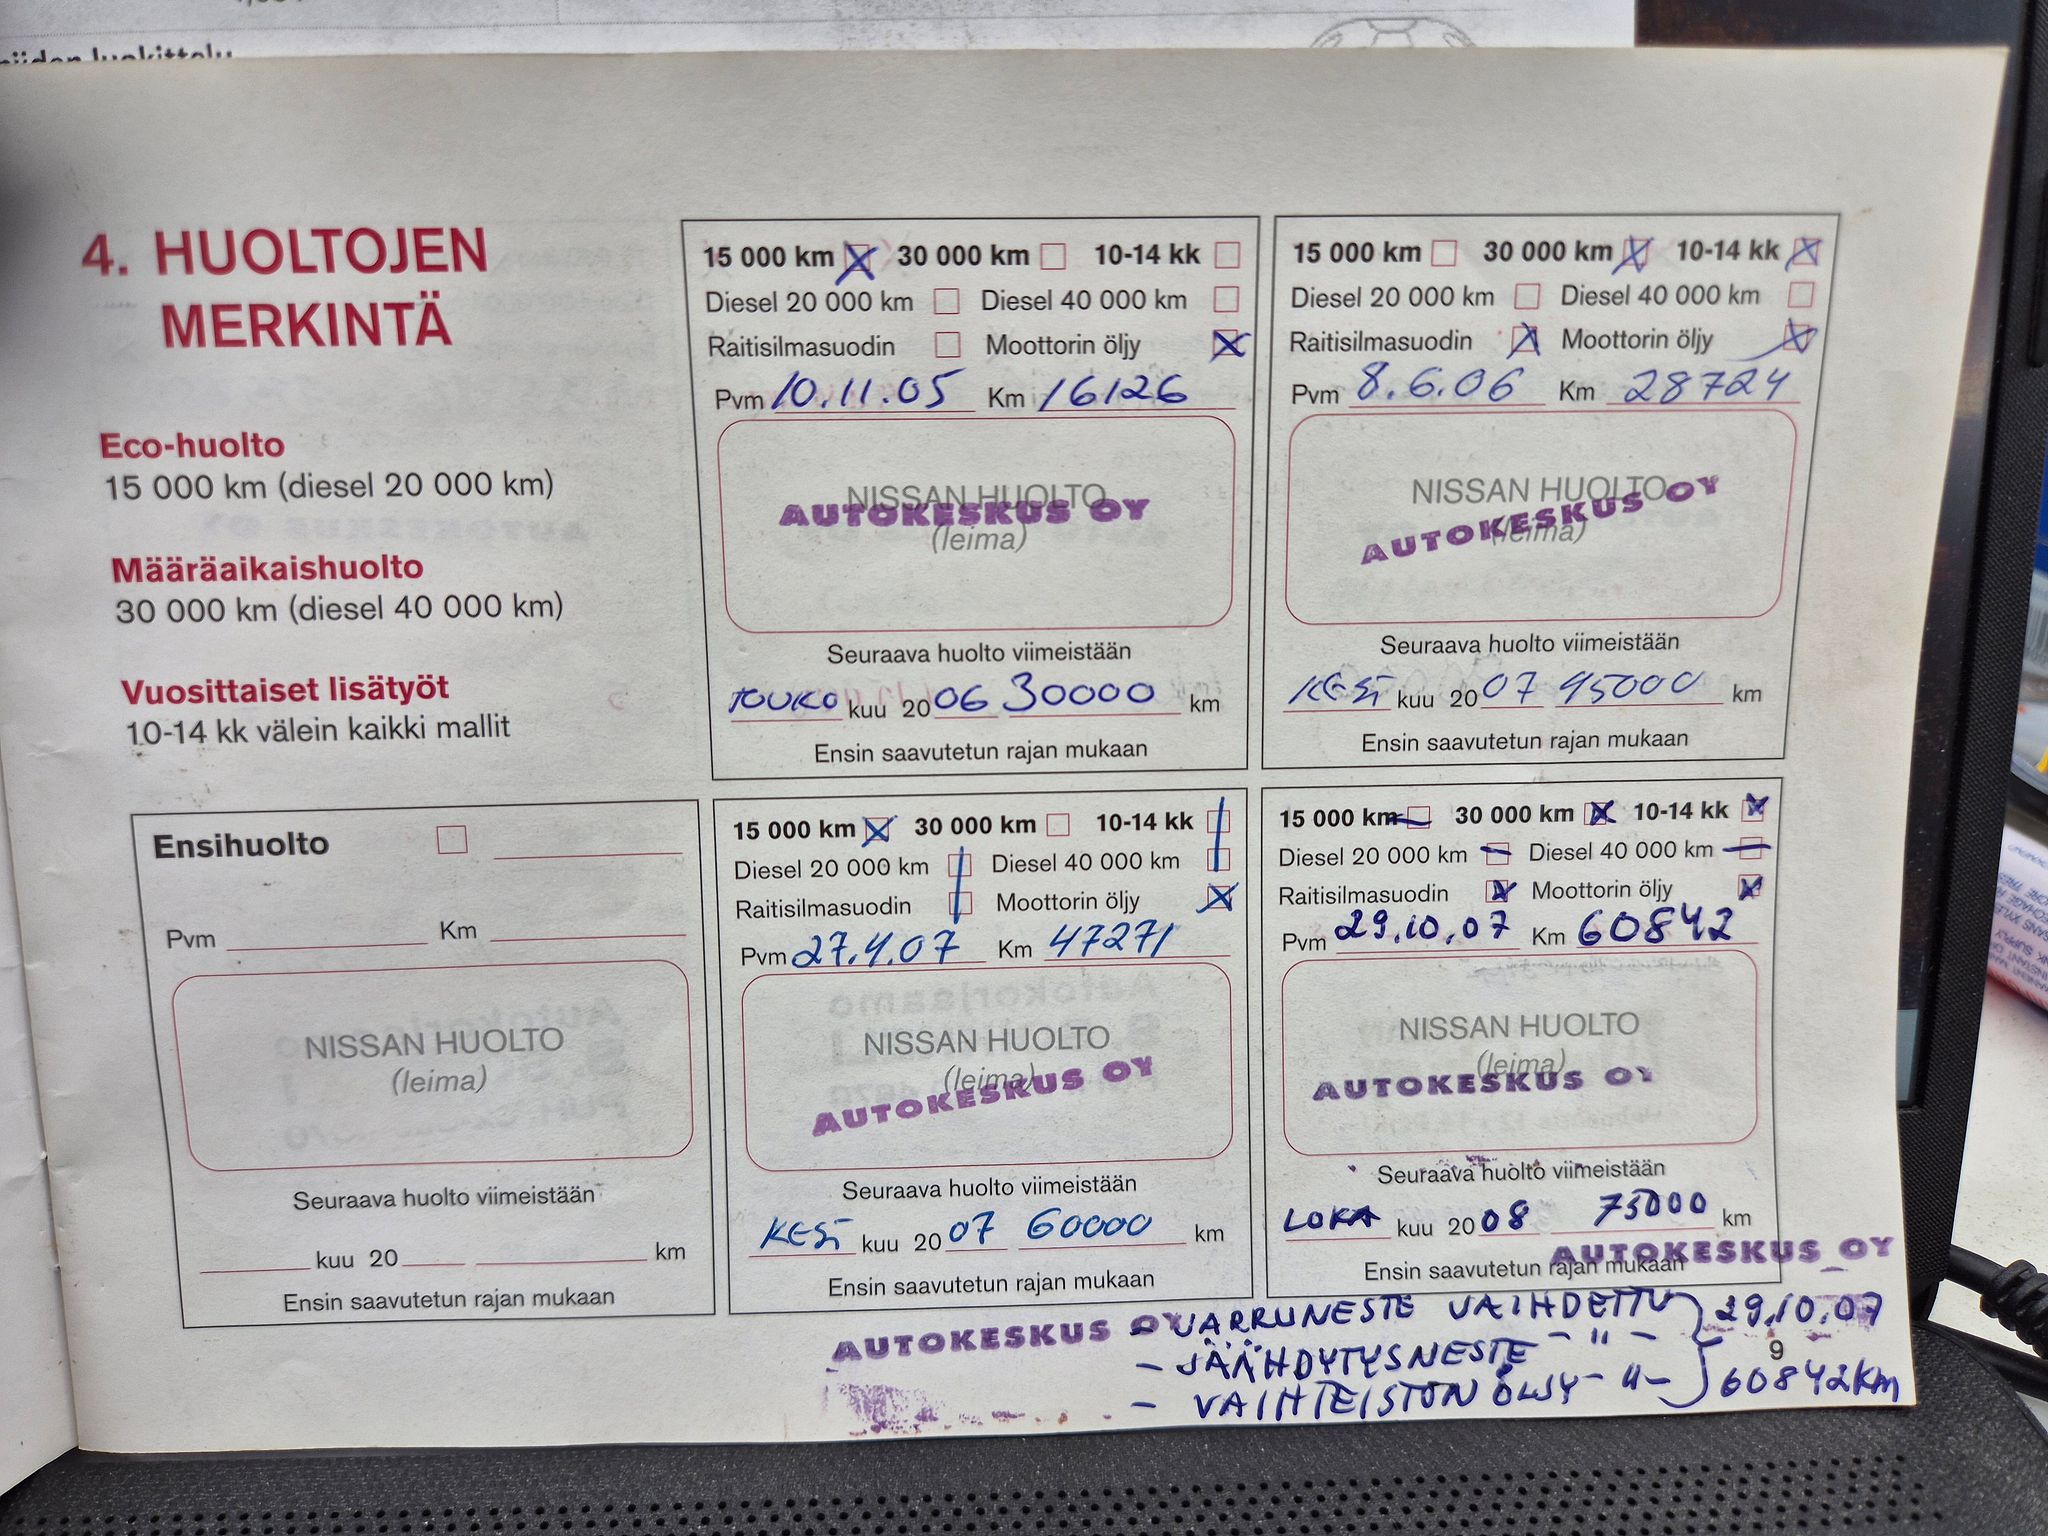 4. HUOLTOJEN
MERKINTÄ
Eco-huolto
15 000 km (diesel 20 000 km)
Määräaikaishuolto
30 000 km (diesel 40 000 km)
Vuosittaiset lisätyöt
10-14 kk välein kaikki mallit
15 000 km 30 000 km 10-14 kk
Diesel 20 000 km Diesel 40 000 km
Raitisilmasuodin Moottorin öljy
Pvm 10.11.05 Km 16126
NISSAN HUOLTO
AUTOKESKUS OY
(leima)
Seuraava huolto viimeistään
TOUKO kuu 2006 30000 km
Ensin saavutetun rajan mukaan
15 000 km 30 000 km 10-14 kk
Diesel 20 000 km Diesel 40 000 km
Raitisilmasuodin Moottorin öljy
Pvm 8.6.06 Km 28724
NISSAN HUOLTO
AUTOKESKUS OY
(leima)
Seuraava huolto viimeistään
KESÄ kuu 2007 45000 km
Ensin saavutetun rajan mukaan
Ensihuolto
Pvm Km
NISSAN HUOLTO
(leima)
Seuraava huolto viimeistään
kuu 20 km
Ensin saavutetun rajan mukaan
15 000 km 30 000 km 10-14 kk
Diesel 20 000 km Diesel 40 000 km
Raitisilmasuodin Moottorin öljy
Pvm 27.4.07 Km 47271
NISSAN HUOLTO
(leima)
AUTOKESKUS OY
Seuraava huolto viimeistään
KESÄ kuu 2007 60000 km
Ensin saavutetun rajan mukaan
15 000 km 30 000 km 10-14 kk
Diesel 20 000 km Diesel 40 000 km
Raitisilmasuodin Moottorin öljy
Pvm 29.10.07 Km 60842
NISSAN HUOLTO
(leima)
AUTOKESKUS OY
Seuraava huolto viimeistään
LOKA kuu 2008 75000 km
AUTOKESKUS OY
Ensin saavutetun rajan mukaan
AUTOKESKUS OY
- JARRUNESTE VAIHDETTU 29.10.07
- JÄÄHDYTYSNESTE - " -
9
- VAIHTEISTON ÖLJY - " - 60842KM